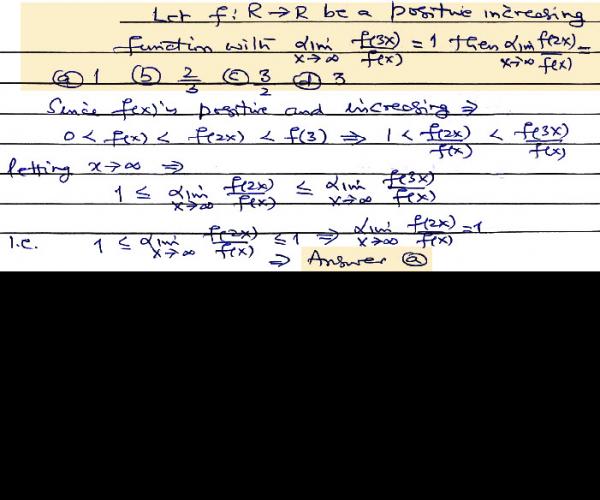 Let f: R→R be a positive increasing
function with lim x→∞ f(3x)/f(x) = 1 then lim x→∞ f(2x)/f(x) =
(a) 1 (b) 2/3 (c) 3/2 (d) 3
Since f(x) is positive and increasing ⇒
0 < f(x) < f(2x) < f(3) ⇒ 1 < f(2x)/f(x) < f(3x)/f(x)
letting x→∞ ⇒
1 ≤ lim x→∞ f(2x)/f(x) ≤ lim x→∞ f(3x)/f(x)
i.e. 1 ≤ lim x→∞ f(2x)/f(x) ≤ 1 ⇒ lim x→∞ f(2x)/f(x) = 1
⇒ Answer (a)